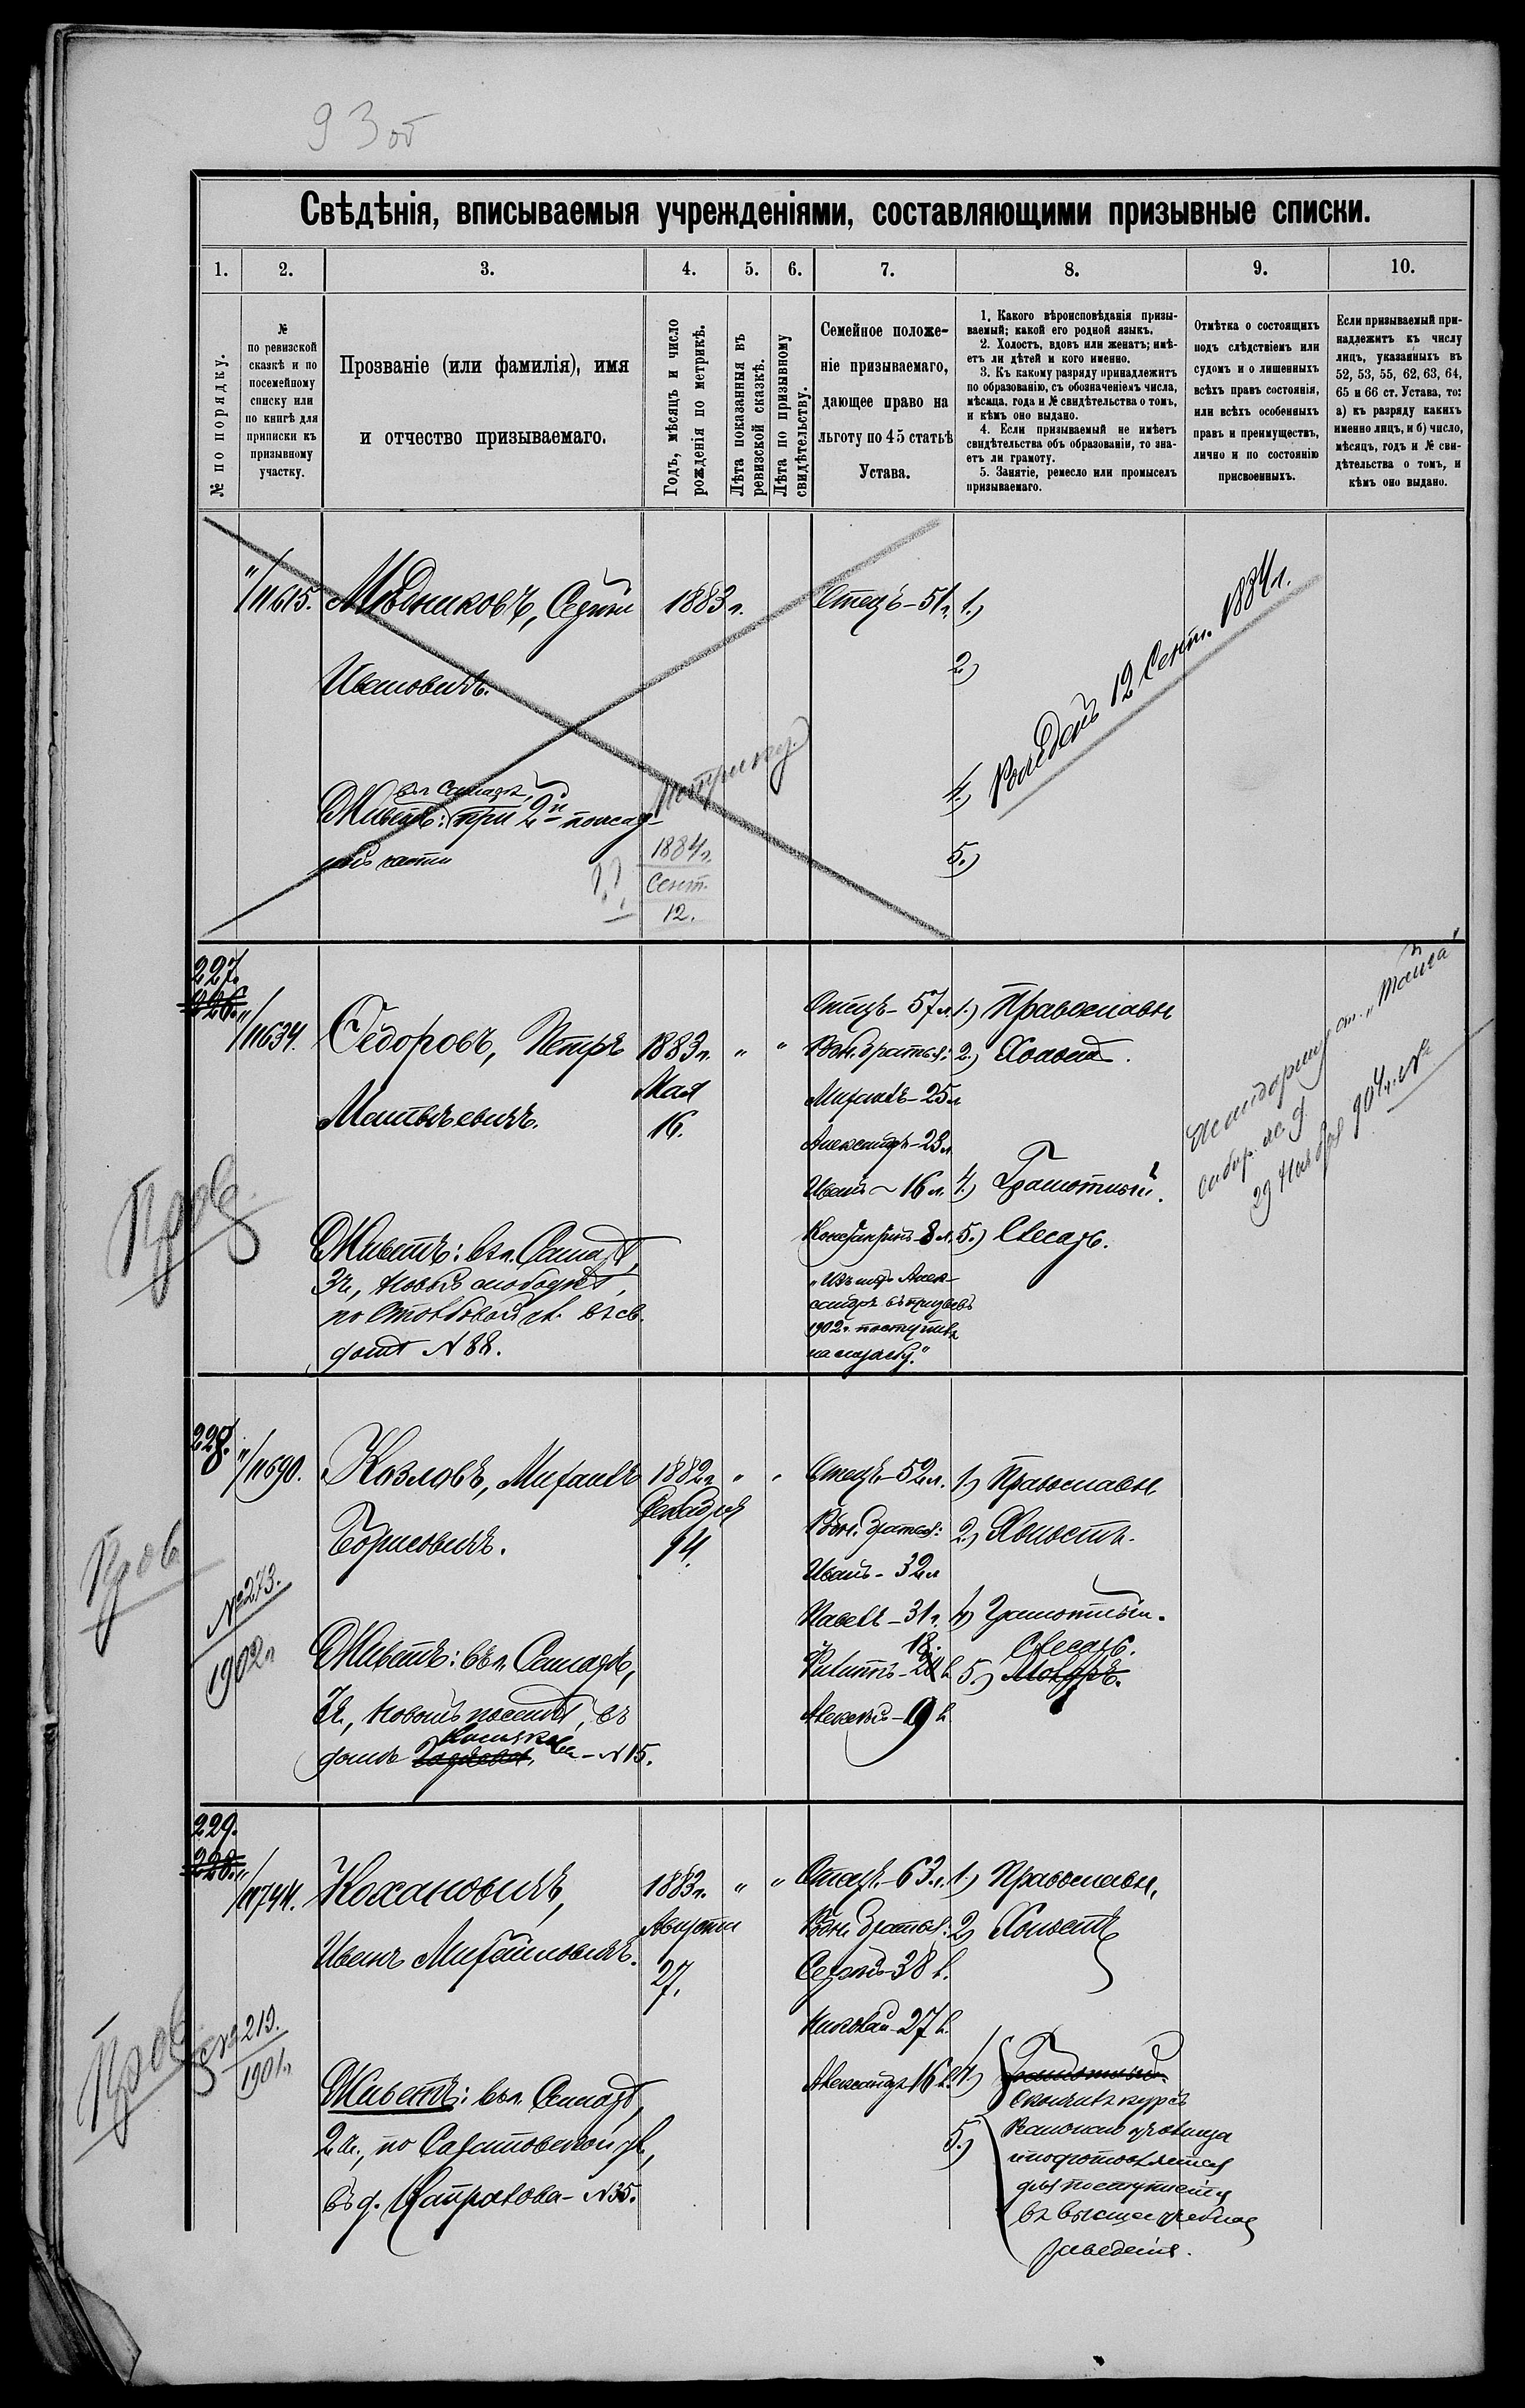 93об
Свѣдѣнія, вписываемыя учрежденіями, составляющими призывные списки.
1. 2. 3. 4. 5. 6. 7. 8. 9. 10.
№ по порядку.
№
по ревизской
сказкѣ и по
посемейному
списку или
по книгѣ для
приписки къ
призывному
участку.
Прозваніе (или фамилія), имя
и отчество призываемаго.
Годъ, мѣсяцъ и число
рожденія по метрикѣ.
Лѣта показанныя въ
ревизской сказкѣ.
Лѣта по призывному
свидѣтельству.
Семейное положе-
ніе призываемаго,
дающее право на
льготу по 45 статьѣ
Устава.
1. Какого вѣроисповѣданія призы-
ваемый; какой его родной языкъ.
2. Холостъ, вдовъ или женатъ; имѣ-
етъ ли дѣтей и кого именно.
3. Къ какому разряду принадлежитъ
по образованію, съ обозначеніемъ числа,
мѣсяца, года и № свидѣтельства о томъ,
и кѣмъ оно выдано.
4. Если призываемый не имѣетъ
свидѣтельства объ образованіи, то зна-
етъ ли грамоту.
5. Занятіе, ремесло или промыселъ
призываемаго.
Отмѣтка о состоящихъ
подъ слѣдствіемъ или
судомъ и о лишенныхъ
всѣхъ правъ состоянія,
или всѣхъ особенныхъ
правъ и преимуществъ,
лично и по состоянію
присвоенныхъ.
Если призываемый при-
надлежитъ къ числу
лицъ, указанныхъ въ
52, 53, 55, 62, 63, 64,
65 и 66 ст. Устава, то:
а) къ разряду какихъ
именно лицъ, и б) число,
мѣсяцъ, годъ и № сви-
дѣтельства о томъ, и
кѣмъ оно выдано.
"/11615. Мѣдниковъ, Сергѣй 1883 г. Отецъ - 51 г. 1.)
Ивановичъ. 2)
Рожденъ 12 Сент. 1884 г.
въ г. Самарѣ,
Живетъ: при 2й полицей- 4.)
ской части 1884 г. 5.)
Сент.
12.
227.
226. "/11634. Ѳедоровъ, Петръ 1883 г. " " Отецъ - 57 л. 1.) Православн
Мая Родн. братья: 2.) Холостъ.
Матвѣевичъ. 16. Михаилъ - 25 л
Александръ - 23 л.
Иванъ - 16 л. 4.) Грамотный.
Константинъ - 8 л. 5.) Слесарь.
Живетъ: въ г. Самарѣ,
3 ч., Новой слободкѣ,
по Столбовой ул. въ св.
домѣ № 88.
"Изъ нихъ Алек-
сандръ въ призывъ
1902 г. поступилъ
на службу."
ст. „Тайга"
29 Ноября 904 г. №
Пров.
228. "/11690. Козловъ, Михаилъ 1882 г. " " Отецъ - 52 л. 1.) Православн
Декабря Родн. братья: 2.) Холостъ.
Борисовичъ. 14. Иванъ - 32 л
Павелъ - 31 г. 4) Грамотный.
18. Слесарь.
Филиппъ - 5.) Маляръ.
Алексѣй - 9 л
№ 273.
1902 г
Живетъ: въ г. Самарѣ,
3 ч., Новомъ поселкѣ, въ
домѣ - № 15.
Пров
229.
228. "/11744. Кохановичъ, 1883 г. " " Отецъ - 63 г. 1.) Православн.
Августа Родн. братья: 2) Холостъ
Иванъ Михайловичъ. 27. Сергѣй - 38 л.
Николай - 27 л.
Александръ 16 л. 4) Грамотный.
Окончилъ курсъ
№ 219.
1901 г.
Живетъ: въ г. Самарѣ, 5.) Реальнаго училища
2 ч., по Саратовской ул., и подготовляется
въ д. - № 35. для поступленія
въ высшее учебное
заведеніе.
Пров.